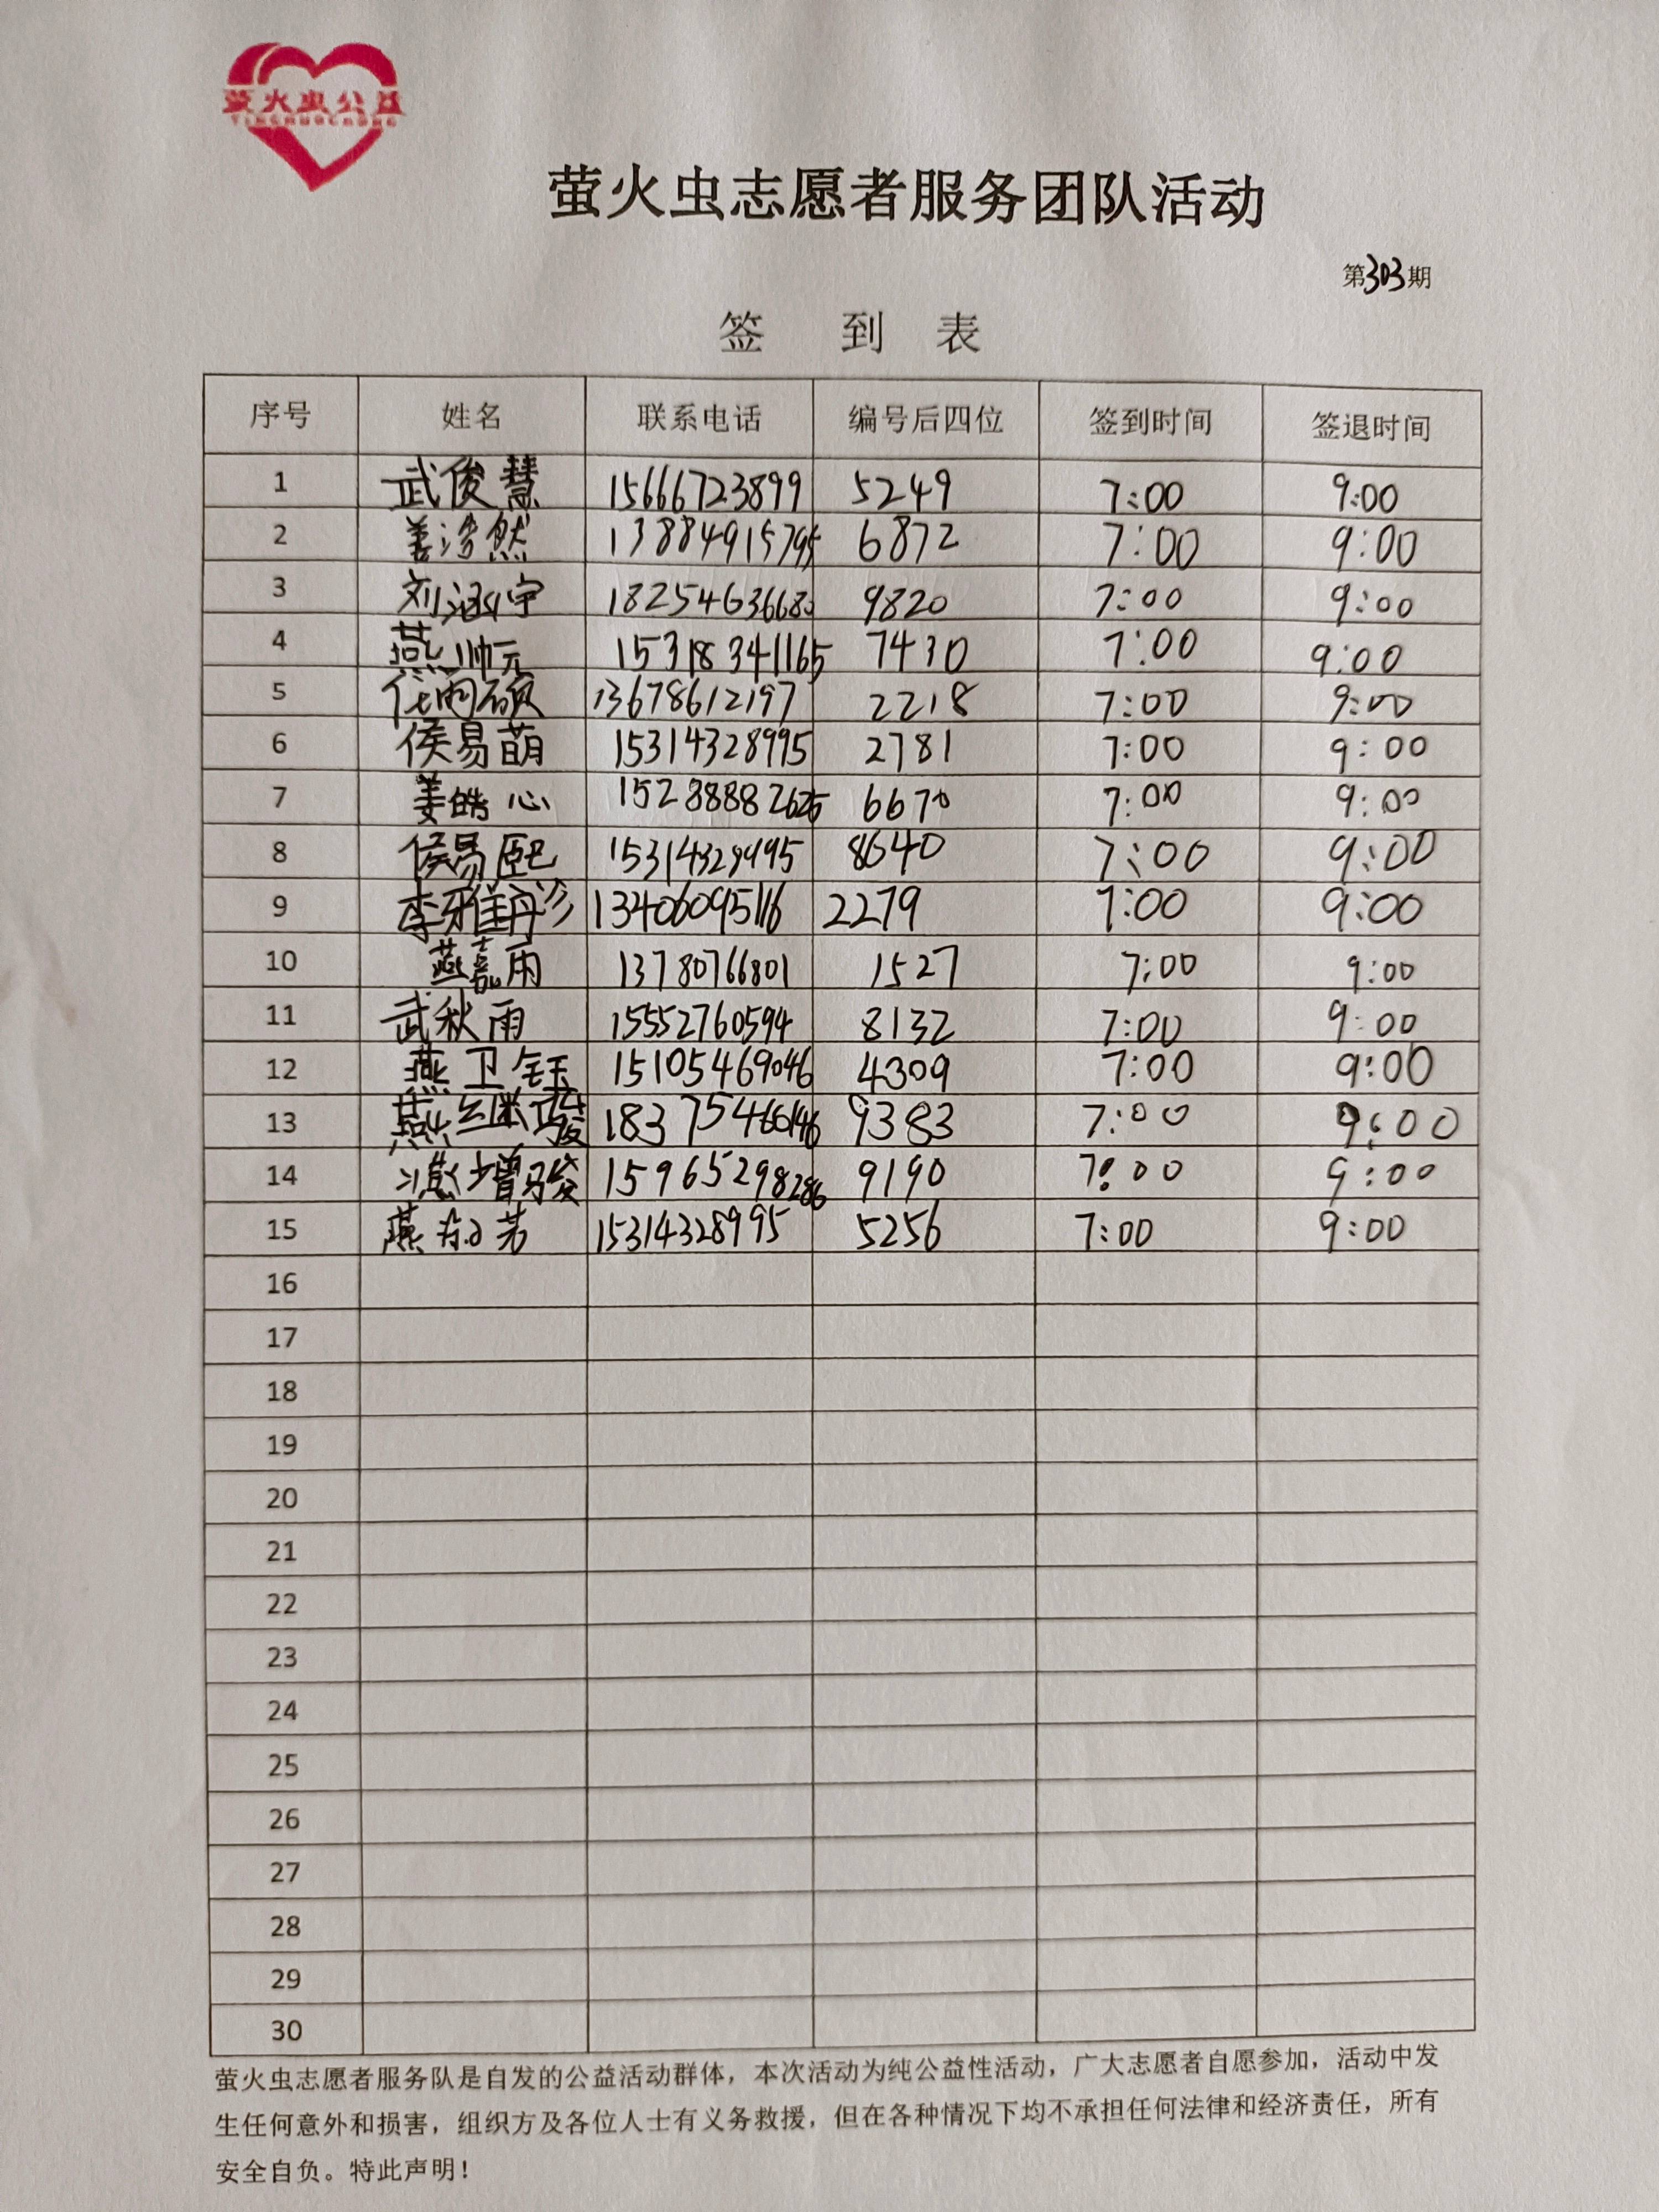 萤火虫公益
YINGHUOCHONG
萤火虫志愿者服务团队活动
第303期
签 到 表
序号 姓名 联系电话 编号后四位 签到时间 签退时间
1 武俊慧 15666723899 5249 7:00 9:00
2 姜浩然 13884915795 6872 7:00 9:00
3 刘涵宇 18254636680 9820 7:00 9:00
4 燕帅元 15318341165 7430 7:00 9:00
5 13678612197 2218 7:00 9:00
6 侯易萌 15314328995 2781 7:00 9:00
7 姜皓心 15288882625 6670 7:00 9:00
8 侯易熙 15314328995 8640 7:00 9:00
9 李雅彤 13406095116 2279 7:00 9:00
10 燕嘉雨 13780766801 1527 7:00 9:00
11 武秋雨 15552760594 8132 7:00 9:00
12 燕卫钰 15105469046 4309 7:00 9:00
13 燕继骏 18375466146 9383 7:00 9:00
14 增骏 15965298286 9190 7:00 9:00
15 燕 芳 15314328995 5256 7:00 9:00
16
17
18
19
20
21
22
23
24
25
26
27
28
29
30
萤火虫志愿者服务队是自发的公益活动群体，本次活动为纯公益性活动，广大志愿者自愿参加，活动中发
生任何意外和损害，组织方及各位人士有义务救援，但在各种情况下均不承担任何法律和经济责任，所有
安全自负。特此声明！